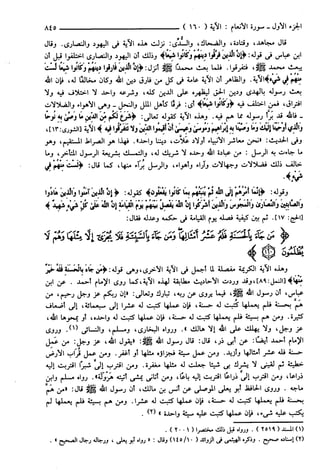 الجزء الأول - سورة الأنعام: الآية (١٦٠) ٨٤٥
قال مجاهد، وقتادة، والضحاك، والسُّدي: نزلت هذه الآية في اليهود والنصارى. وقال
ابن عباس في قوله: ﴿إن الذين فرقوا دينهم وكانوا شيعاً﴾ وذلك أن اليهود والنصارى اختلفوا قبل أن
يبعث محمد ﷺ، فتفرقوا. فلما بعث محمد ﷺ أنزل: ﴿إن الذين فرقوا دينهم وكانوا شيعاً لست
منهم في شيء﴾ الآية. والظاهر أن الآية عامة في كل من فارق دين الله وكان مخالفًا له، فإن الله
بعث رسوله بالهدى ودين الحق ليظهره على الدين كله، وشرعه واحد لا اختلاف فيه ولا
افتراق، فمن اختلف فيه ﴿وكانوا شيعاً﴾ أي: فرقًا كأهل الملل والنحل - وهي الأهواء والضلالات
- فالله قد برّأ رسوله مما هم فيه. وهذه الآية كقوله تعالى: ﴿شرع لكم من الدين ما وصى به نوحاً
والذي أوحينا إليك وما وصينا به إبراهيم وموسى وعيسى أن أقيموا الدين ولا تتفرقوا فيه﴾ الآية [الشورى: ١٣].
وفي الحديث: «نحن معاشر الأنبياء أولاد علات، ديننا واحد». فهذا هو الصراط المستقيم، وهو
ما جاءت به الرسل: من عبادة الله وحده لا شريك له، والتمسك بشريعة الرسول المتأخر، وما
خالف ذلك فضلالات وجهالات وآراء وأهواء، والرسل بُرآء منها، كما قال: ﴿لست منهم في
شيء﴾.
وقوله: ﴿إنما أمرهم إلى الله ثم ينبئهم بما كانوا يفعلون﴾ كقوله: ﴿إن الذين آمنوا والذين هادوا
والصابئين والنصارى والمجوس والذين أشركوا إن الله يفصل بينهم يوم القيامة إن الله على كل شيء شهيد﴾
[الحج: ١٧]. ثم بين كيفية فصله يوم القيامة في حكمه وعدله فقال:
﴿من جاء بالحسنة فله عشر أمثالها ومن جاء بالسيئة فلا يجزى إلا مثلها وهم لا
يظلمون﴾
وهذه الآية الكريمة مفصلة لما أجمل في الآية الأخرى، وهي قوله: ﴿من جاء بالحسنة فله خير
منها﴾ [النمل: ٨٩]، وقد وردت الأحاديث مطابقة لهذه الآية، كما روى الإمام أحمد. عن ابن
عباس، أن رسول الله ﷺ، فيما يروى عن ربه، تبارك وتعالى: «إن ربكم عز وجل رحيم، من
هم بحسنة فلم يعملها كتبت له حسنة، فإن عملها كتبت له عشرا إلى سبعمائة، إلى أضعاف
كثيرة. ومن هم بسيئة فلم يعملها كتبت له حسنة، فإن عملها كتبت له واحدة، أو يمحوها الله،
عز وجل، ولا يهلك على الله إلا هالك». ورواه البخاري، ومسلم، والنسائي (١). وروى
الإمام أحمد أيضًا: عن أبي ذر، قال: قال رسول الله ﷺ: «يقول الله، عز وجل: من عمل
حسنة فله عشر أمثالها وأزيد. ومن عمل سيئة فجزاؤه مثلها أو أغفر. ومن عمل قراب الأرض
خطيئة ثم لقيني لا يشرك بي شيئا جعلت له مثلها مغفرة. ومن اقترب إليّ شبرًا اقتربت إليه
ذراعا، ومن اقترب إليّ ذراعًا اقتربت إليه باعًا، ومن أتاني يمشي أتيته هرولة». ورواه مسلم وابن
ماجه. وروى الحافظ أبو يعلى الموصلي عن أنس بن مالك، أن رسول الله ﷺ قال: «من هم
بحسنة فلم يعملها كتبت له حسنة، فإن عملها كتبت له عشرا. ومن هم بسيئة فلم يعملها لم
يكتب عليه شيء، فإن عملها كتبت عليه سيئة واحدة» (٢).
(١) المسند (٢٥١٩). ورواه قبل ذلك مختصرا (٢٠٠١).
(٢) إسناده صحيح. وذكره الهيثمي في الزوائد (١٠/١٤٥) وقال: «رواه أبو يعلى، ورجاله رجال الصحيح».